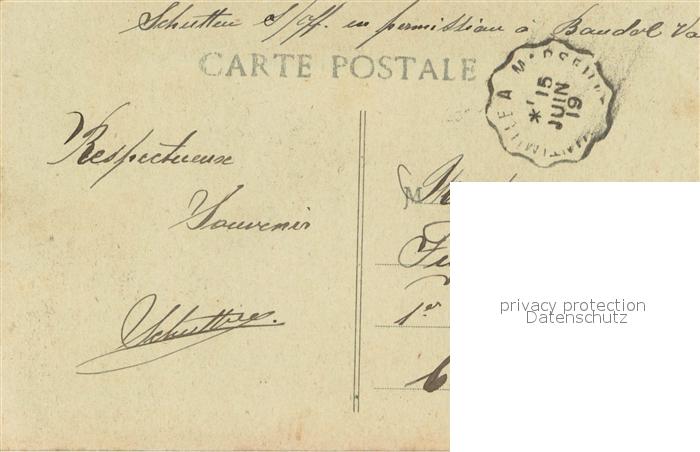 Schutteu S/Off. en permission à Bandol Va
CARTE POSTALE
VINTIMILLE A MARSEILLE
* 15
JUIN
19
Respectueux
Souvenir
M
1er
6
privacy protection
Datenschutz